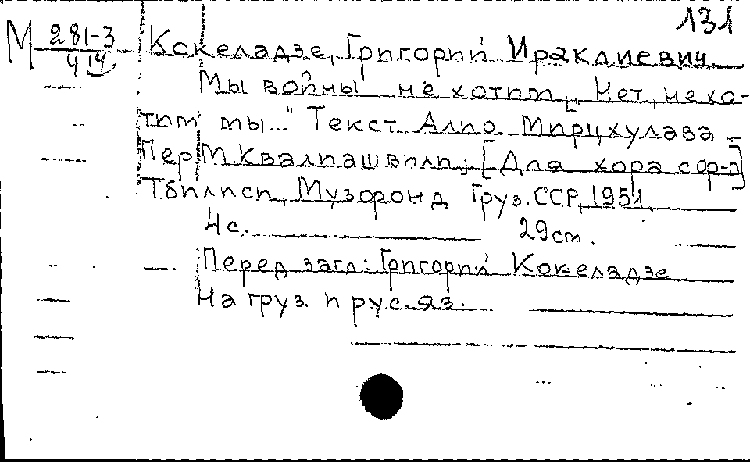 131
М 281-3
414
Кокеладзе, Григорий Ираклиевич
Мы войны не хотим [„Нет, не хо-
тим мы..." Текст Алио Мирцхулава
Пер М. Квалиашвили. [Для хора с ф-п]
Тбилиси, Музфонд Груз. ССР, 1951
4с. 29см.
Перед загл: Григорий Кокеладзе
На груз и рус. яз.